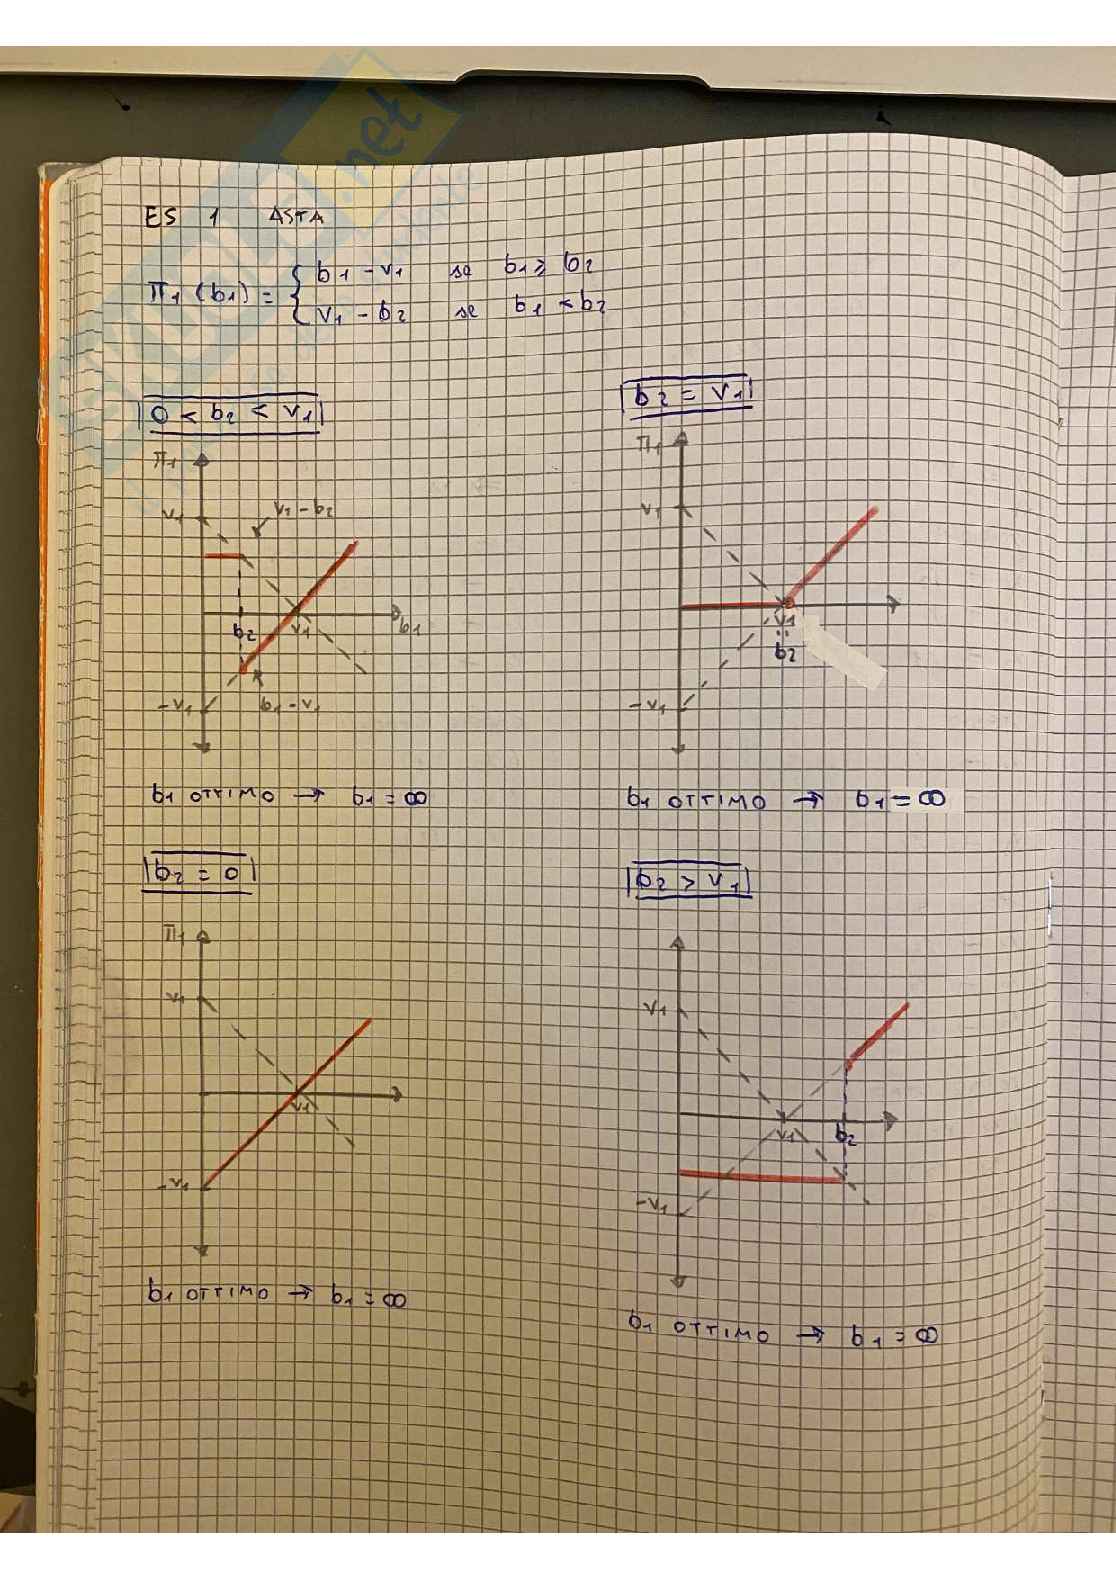 ES 1 ASTA
π1 (b1) = { b1 - v1 se b1 ≥ b2
v1 - b2 se b1 < b2
0 < b2 < v1
π1
v1
v1 - b2
b2
v1
b1
-v1
b1 - v1
b1 OTTIMO → b1 = ∞
b2 = v1
π1
v1
v1
b2
-v1
b1 OTTIMO → b1 = ∞
b2 = 0
π1
v1
v1
-v1
b1 OTTIMO → b1 = ∞
b2 > v1
v1
v1
b2
-v1
b1 OTTIMO → b1 = ∞
.net